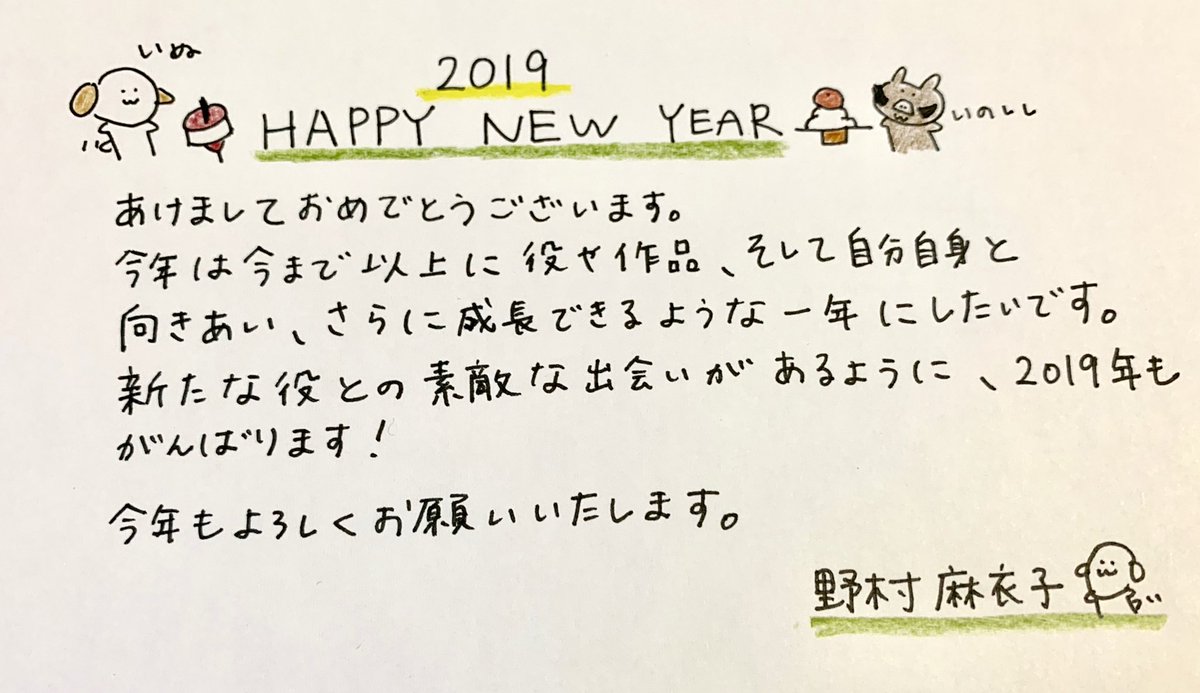 いぬ
2019
HAPPY NEW YEAR
いのしし
あけましておめでとうございます。
今年は今まで以上に役や作品、そして自分自身と
向きあい、さらに成長できるような一年にしたいです。
新たな役との素敵な出会いがあるように、2019年も
がんばります！
今年もよろしくお願いいたします。
野村麻衣子